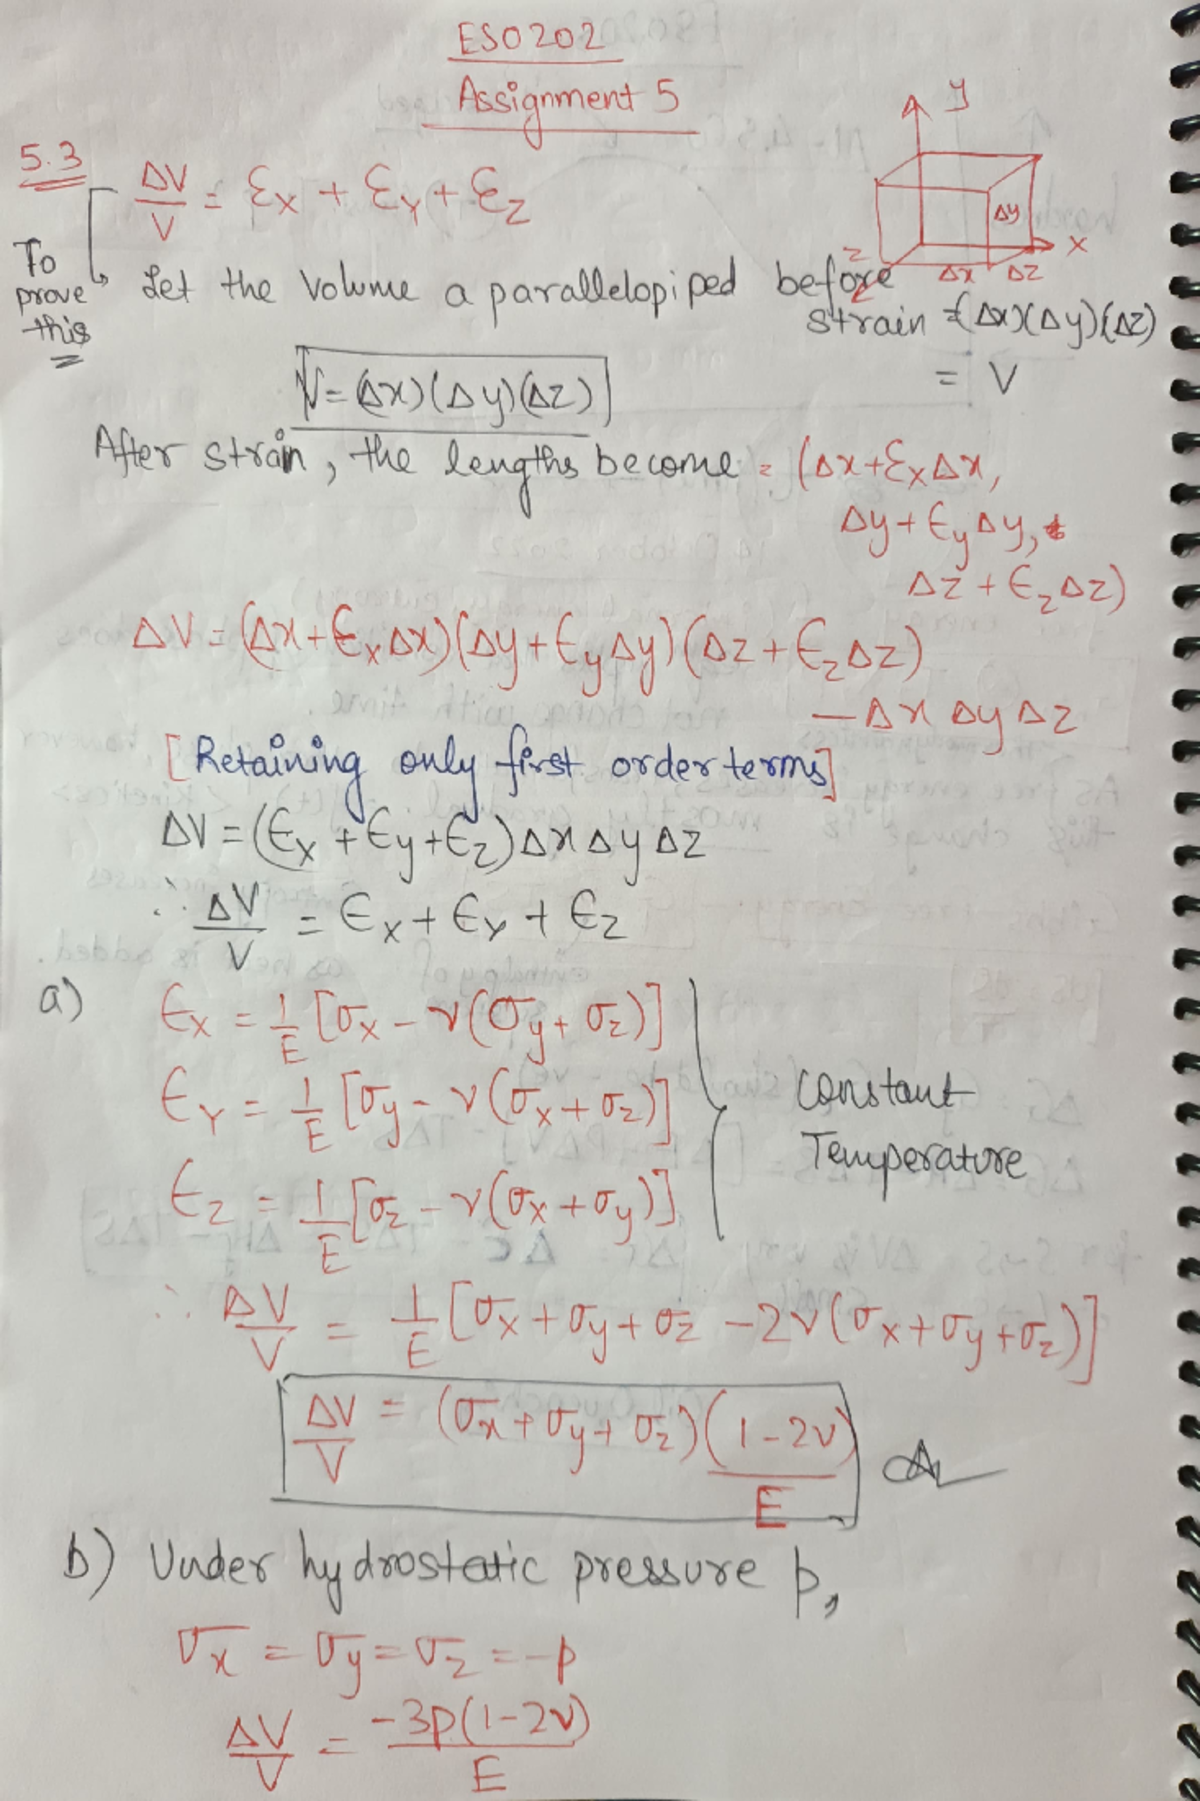 ESO202
Assignment 5
5.3
ΔV/V = Ɛx + Ɛy + Ɛz
y
Δy
x
z
Δx Δz
To prove this
Let the volume a parallelopiped before strain = (Δx)(Δy)(Δz)
= V
V = (Δx)(Δy)(Δz)
After strain, the lengths become = (Δx+ƐxΔx,
Δy + ϵyΔy,
Δz + ϵzΔz)
ΔV = (Δx+ϵxΔx)(Δy+ϵyΔy)(Δz+ϵzΔz)
– Δx Δy Δz
[Retaining only first order terms]
ΔV = (ϵx + ϵy + ϵz) Δx Δy Δz
∴ ΔV/V = ϵx + ϵy + ϵz
a) ϵx = 1/E [σx – ν(σy + σz)]
ϵy = 1/E [σy – ν(σx + σz)]
ϵz = 1/E [σz – ν(σx + σy)]
Constant
Temperature
∴ ΔV/V = 1/E [σx + σy + σz – 2ν(σx + σy + σz)]
ΔV/V = (σx + σy + σz) (1 – 2ν)/E
b) Under hydrostatic pressure p,
σx = σy = σz = –p
ΔV/V = –3p(1–2ν)/E